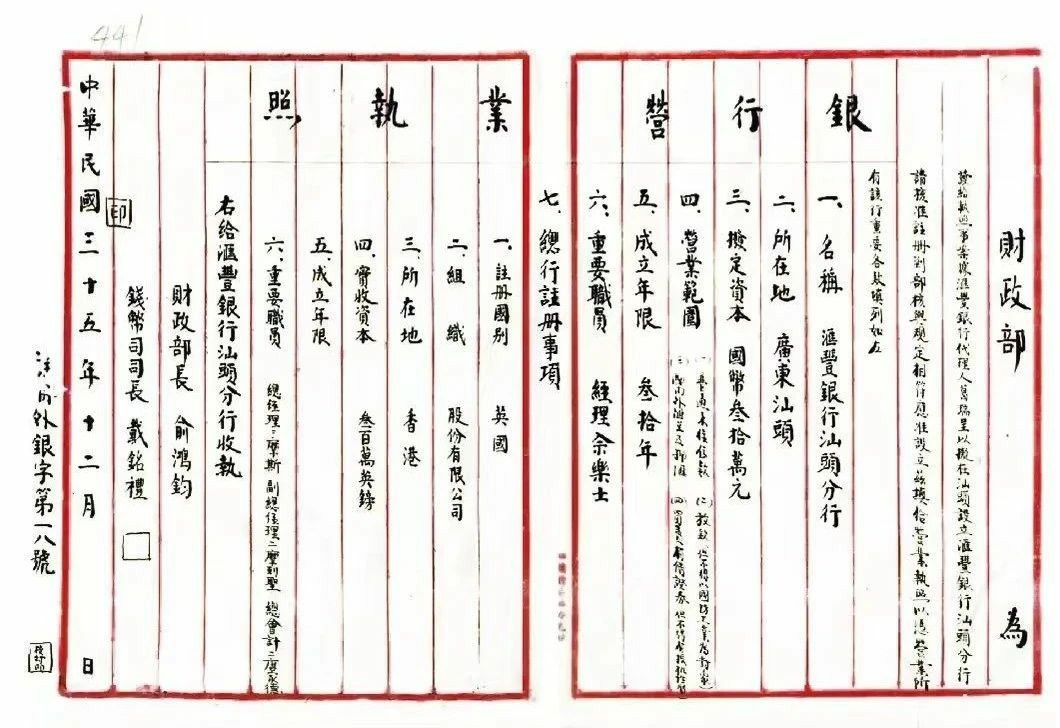 441
財政部 為
發給執照事案據滙豐銀行代理人 呈以擬在汕頭設立滙豐銀行汕頭分行
請核准註冊到部核與規定相符應准設立茲換給營業執照以憑營業所
有該行重要各款填列如左
銀行營業執照
一、名稱 滙豐銀行汕頭分行
二、所在地 廣東汕頭
三、撥定資本 國幣叁拾萬元
四、營業範圍
五、成立年限 叁拾年
六、重要職員 經理佘樂士
七、總行註冊事項
一、註冊國别 英國
二、組織 股份有限公司
三、所在地 香港
四、實收資本 叁百萬英鎊
五、成立年限
六、重要職員 總經理:摩斯 副總經理:摩利聖 總會計:
右給滙豐銀行汕頭分行收執
財政部長 俞鴻鈞
錢幣司司長 戴銘禮
印
中華民國三十五年十二月 日
外銀字第一八號